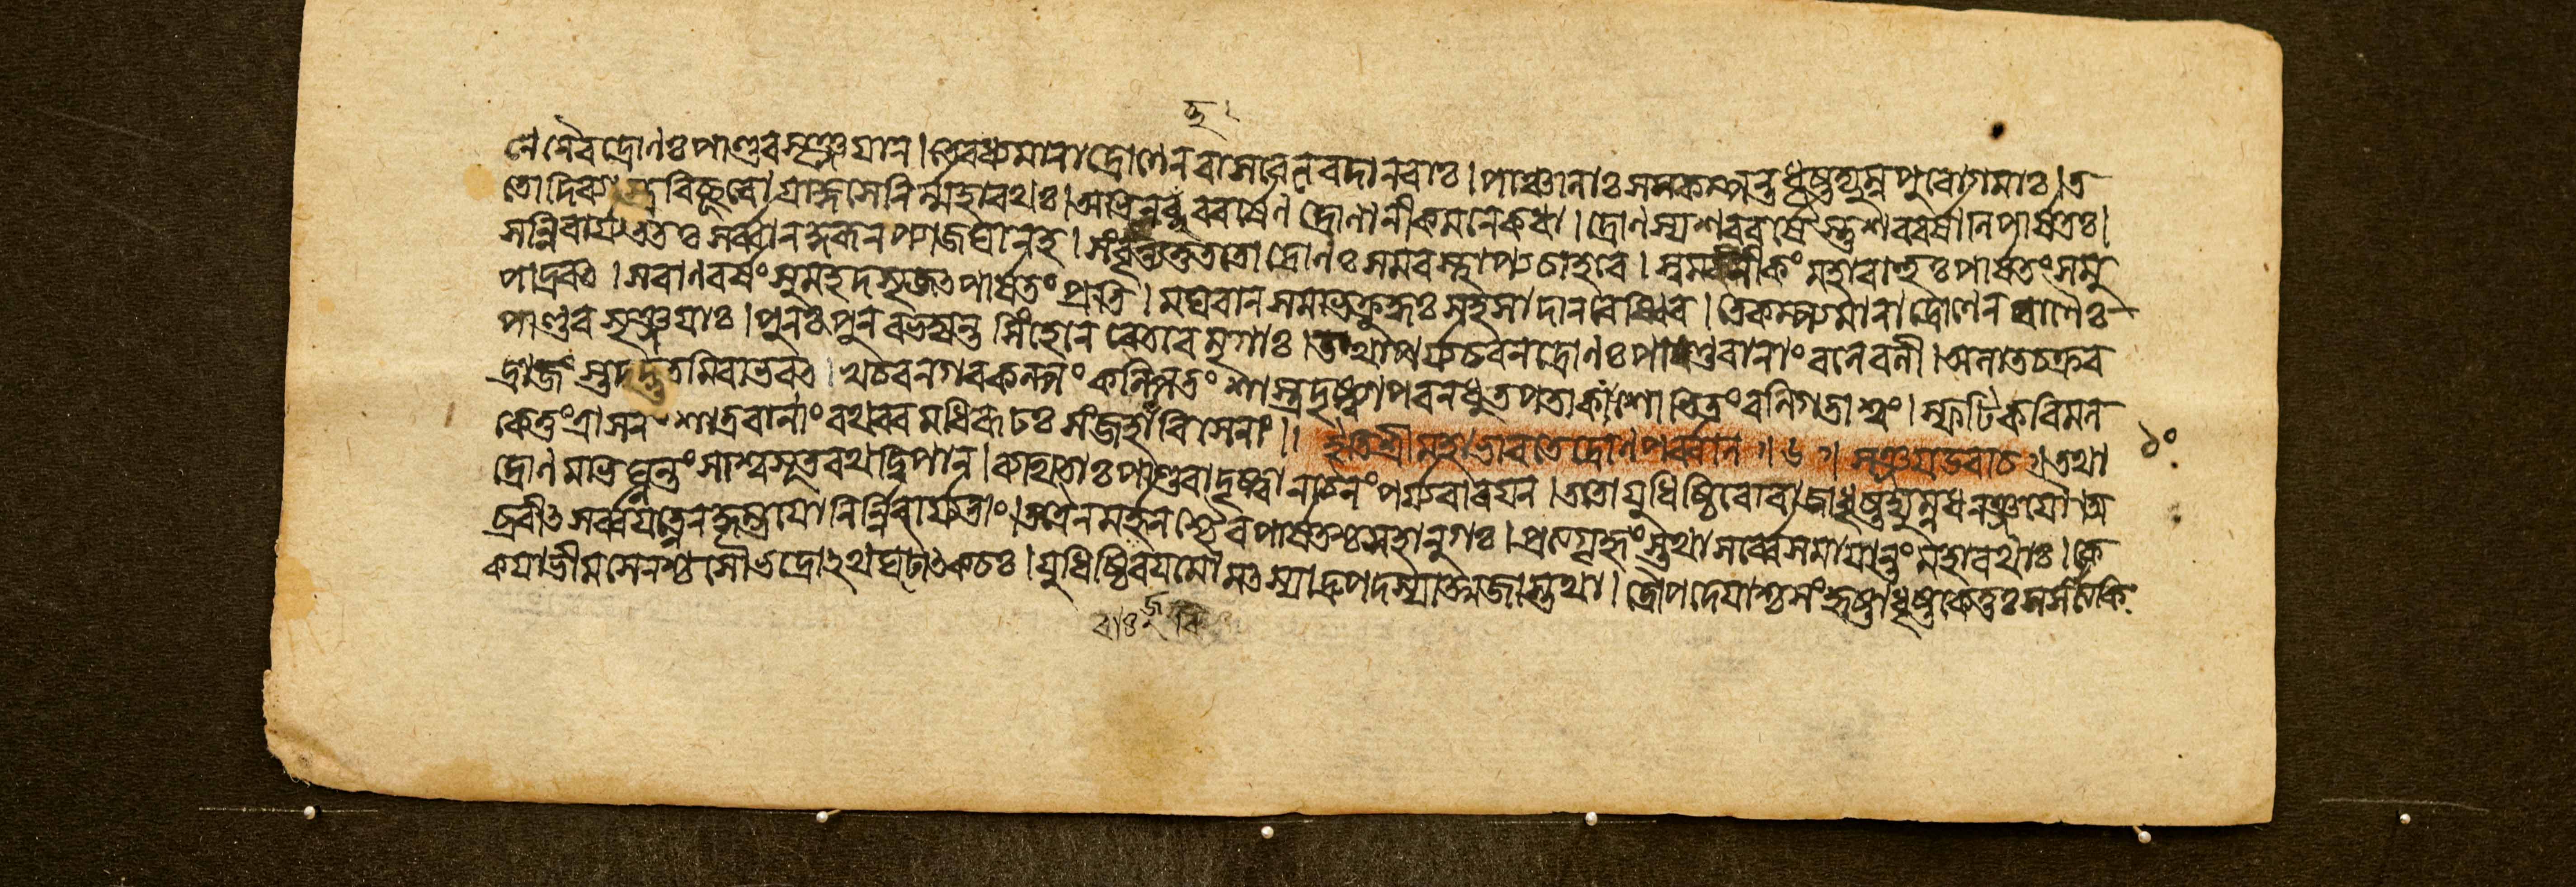 ত্তু।
নেনৈব দ্রোণঃ পাণ্ডবসৃঞ্জয়ান। তে বধ্যমানা দ্রোণেন বাসবেনেব দানবাঃ। পাঞ্চালাঃ সমকম্পন্ত ধৃষ্টদ্যুম্নপুরোগমাঃ। ত
তো দিব্যাস্ত্রবিচ্ছূরো যাজ্ঞসেনির্ম্মহারথঃ। অভিনচ্ছরবর্ষেণ দ্রোণানীকমনেকধা। দ্রোণস্য শরবর্ষৈস্তু শরবর্ষাণি পার্ষতঃ।
সন্নিবার্য্য ততঃ সর্ব্বান কুরূনপ্যজঘানহ। সংহৃত্য তু ততো দ্রোণঃ সমবস্থাপ্য চাহবে। স্বমনীকং মহাবাহুঃ পার্ষতং সমু
পাদ্রবৎ। স বাণবর্ষং সুমহদসৃজৎ পার্ষতং প্রতি। মঘবান সমভিক্রুদ্ধঃ সহসা দানবেষ্বিব। তে কম্প্যমানা দ্রোণেন বাণৈঃ
পাণ্ডবসৃঞ্জয়াঃ। পুনঃ পুনরভজ্যন্ত সিংহেনেবেতরে মৃগাঃ। তথা পর্য্যচরন দ্রোণঃ পাণ্ডবানাং বলে বলী। অলাতচক্রব
দ্রাজংস্তদদ্ভুতমিবাভবৎ। খচরনগরকল্পং কল্পিতং শাস্ত্রদৃষ্ট্যা পবনধুতপতাকাং শোভিতং বল্গিতাশ্বং। স্ফটিকবিমল
কেতুং ত্রাসনং শাত্রবানাং রথবরমধিরূঢঃ সংজহারি সেনাং।। ইতি শ্রীমহাভারতে দ্রোণপর্ব্বনি।। ৬।। সঞ্জয় উবাচ। তথা
দ্রোণমভিঘ্নন্তং সাশ্বসূতরথদ্বিপান। ব্যথিতাঃ পাণ্ডবা দৃষ্ট্বা ন চৈনং পর্য্যবারয়ন। ততো যুধিষ্ঠিরো রাজা ধৃষ্টদ্যুম্নধনঞ্জয়ৌ। অ
ব্রবীৎ সর্ব্বযত্নেন কুম্ভযোনির্নিবার্য্যতাং। তত্রৈনমর্জুনশ্চৈব পার্ষতশ্চ সহানুগঃ। প্রত্যগৃহ্নংস্তথা সর্ব্বে সমায়ান্তং মহারথাঃ। কে
কয়া ভীমসেনশ্চ সৌভদ্রোঽথ ঘটোৎকচঃ। যুধিষ্ঠিরযমৌ মৎস্যা দ্রুপদস্যাত্মজাস্তথা। দ্রৌপদেয়াশ্চ সংহৃষ্টা ধৃষ্টকেতুঃ সসাত্যকিঃ
১০